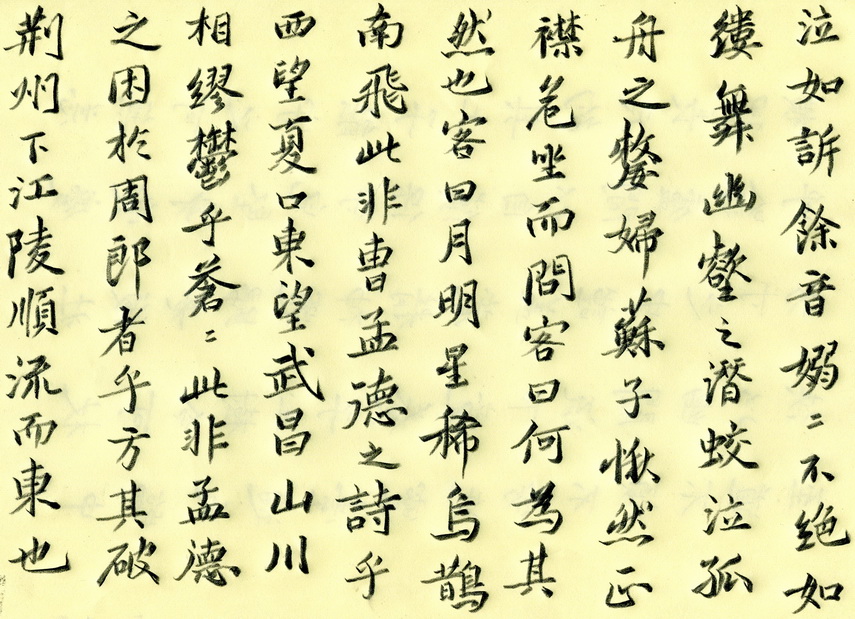 泣如訴餘音嫋〻不絕如
縷舞幽壑之潛蛟泣孤
舟之嫠婦蘇子愀然正
襟危坐而問客曰何為其
然也客曰月明星稀烏鵲
南飛此非曹孟德之詩乎
西望夏口東望武昌山川
相繆鬱乎蒼〻此非孟德
之困於周郎者乎方其破
荆州下江陵順流而東也